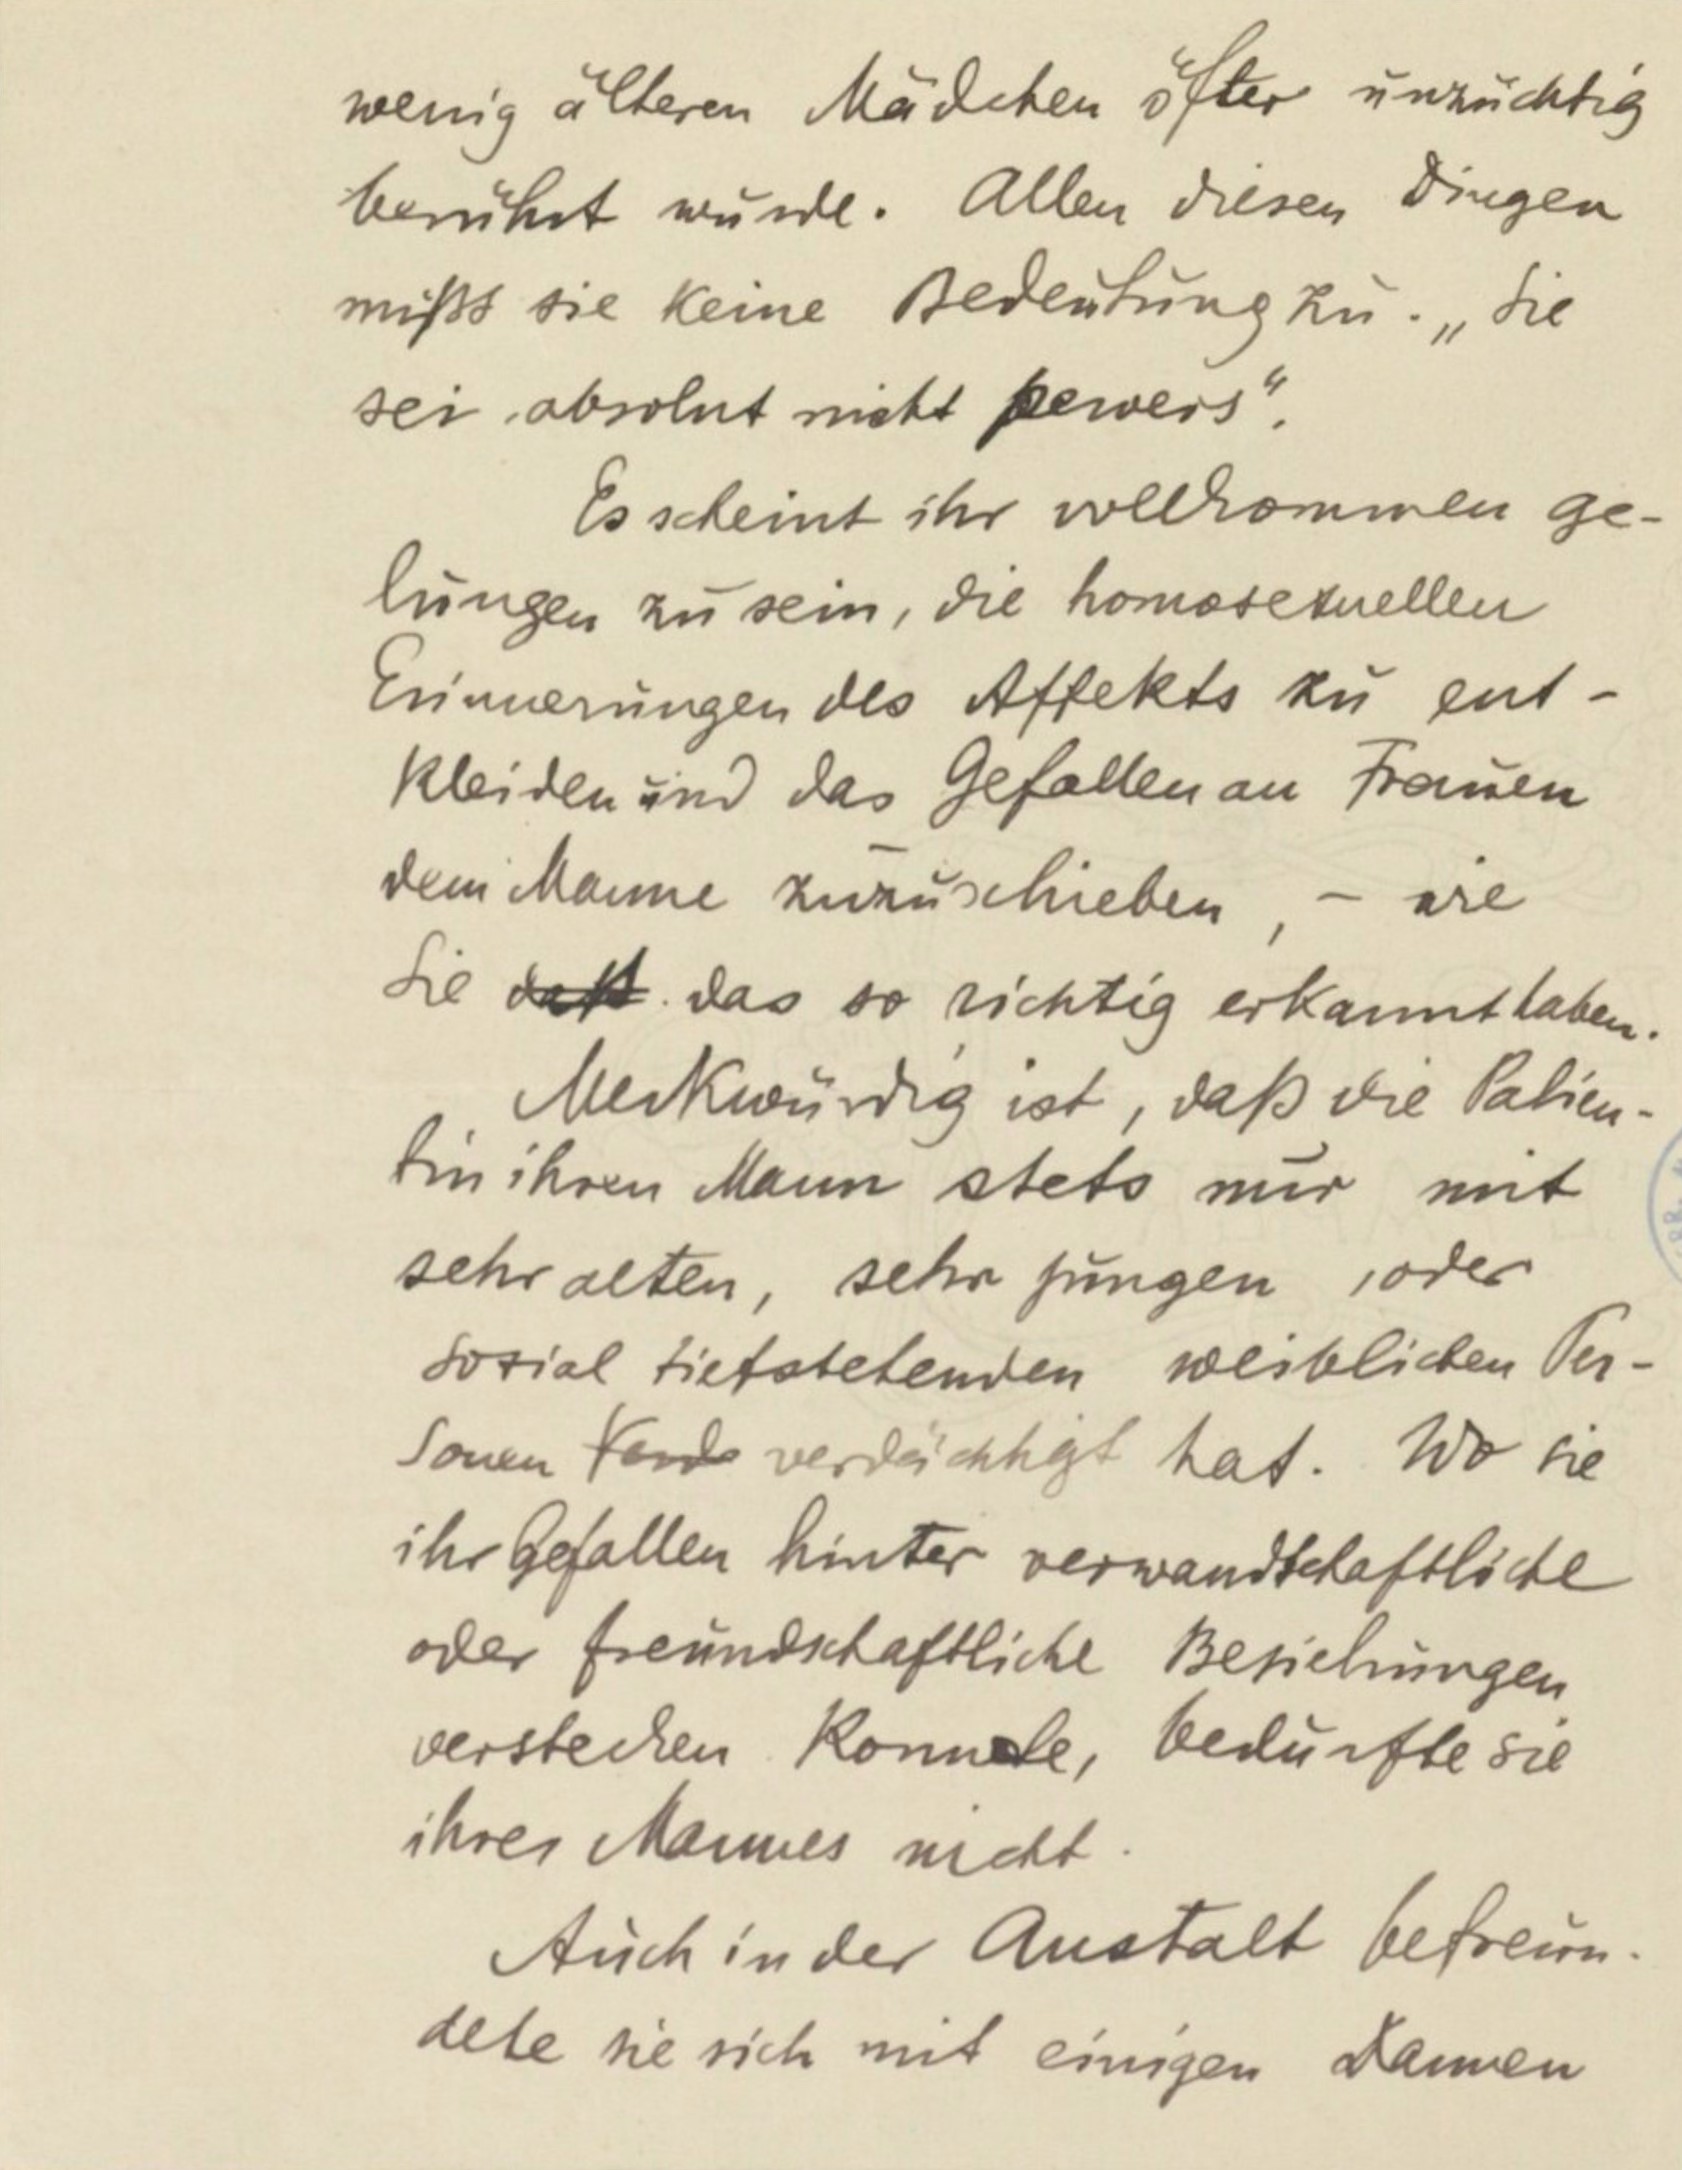 wenig älteren Mädchen öfter unzüchtig
berührt wurde. Allen diesen Dingen
mißt sie keine Bedeutung zu. „Sie
sei absolut nicht pervers“.
Es scheint ihr vollkommen ge-
lungen zu sein, die homosexuellen
Erinnerungen des Affekts zu ent-
kleiden und das Gefallen an Frauen
dem Manne zuzuschieben, – wie
Sie daß das so richtig erkannt haben.
Merkwürdig ist, daß die Patien-
tin ihren Mann stets nur mit
sehr alten, sehr jungen, oder
sozial tiefstehenden weiblichen Per-
sonen verdächtigt hat. Wo sie
ihr Gefallen hinter verwandtschaftliche
oder freundschaftliche Beziehungen
verstecken konnte, bedurfte sie
ihres Mannes nicht.
Auch in der Anstalt befreun-
dete sie sich mit einigen Damen